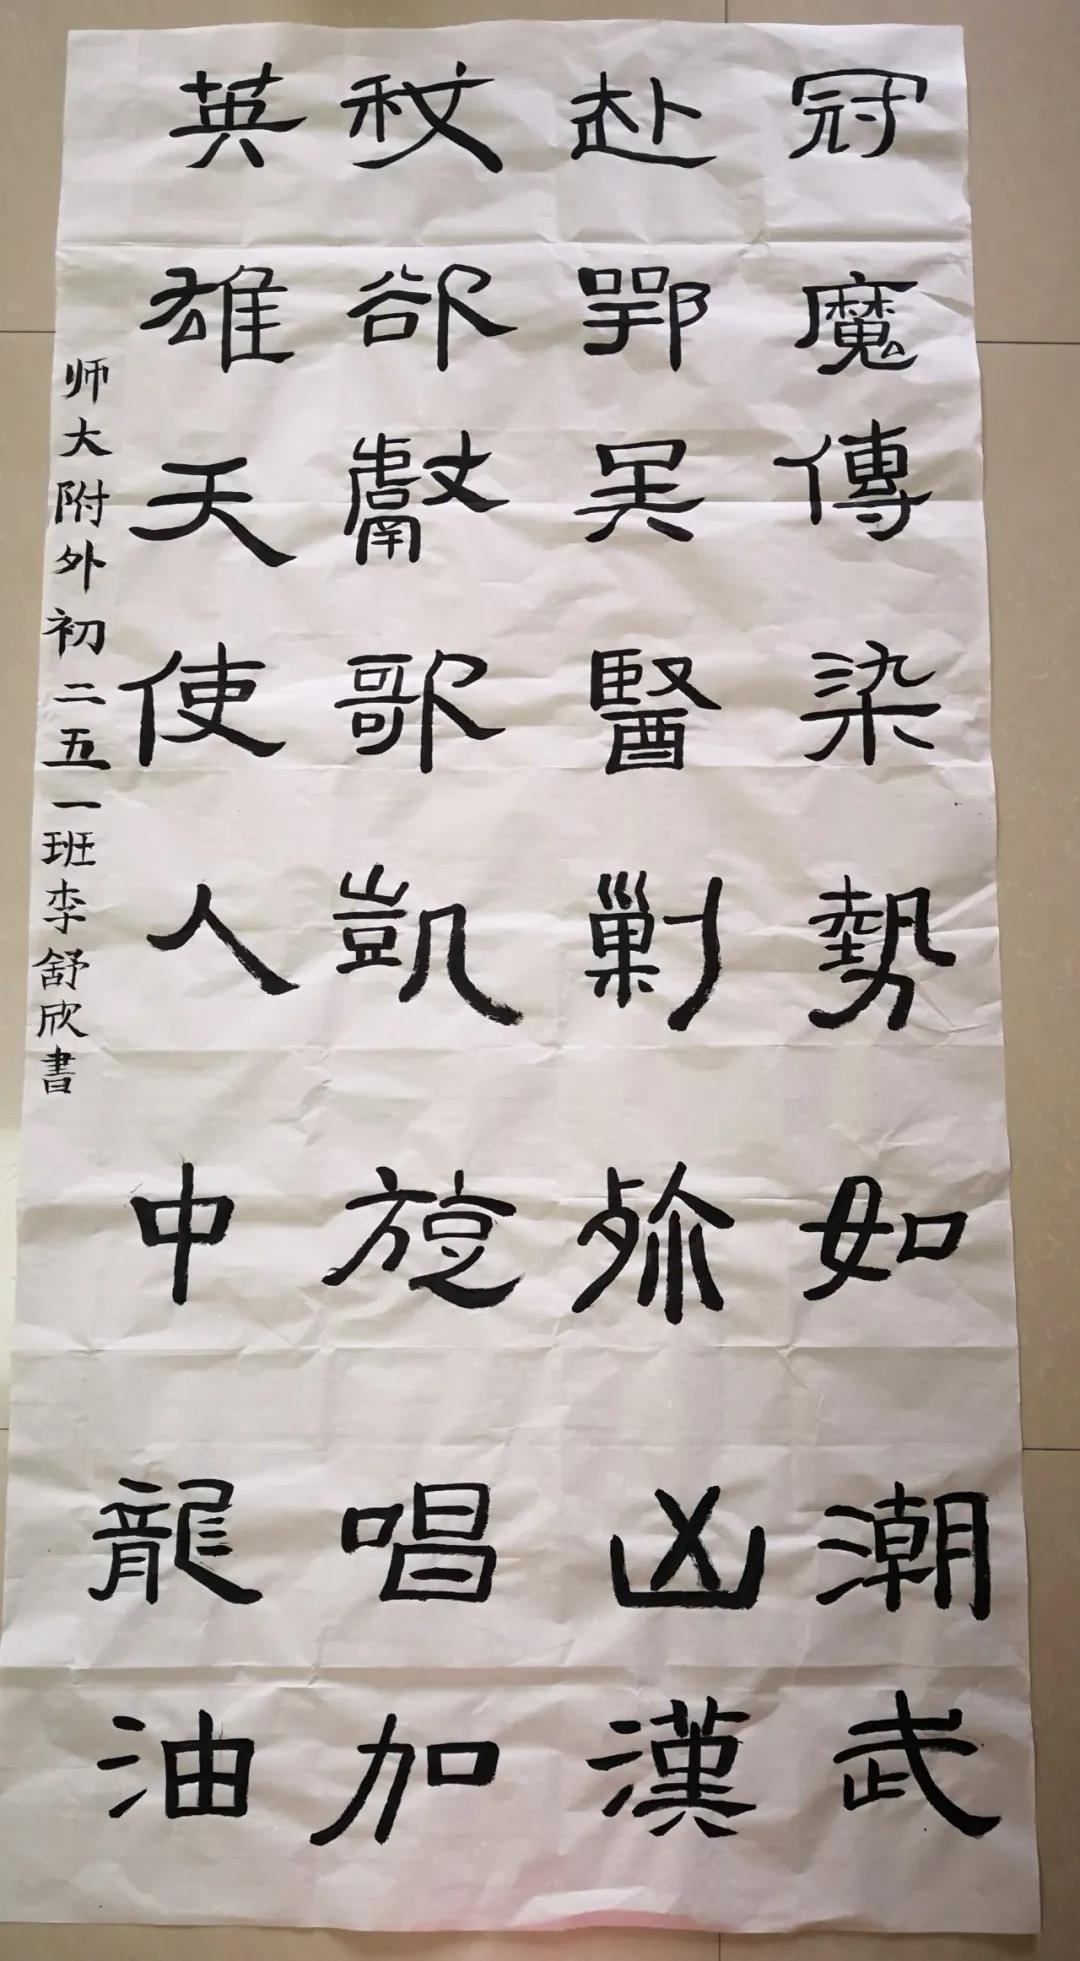 冠魔傳染勢如潮武
赴鄂吴醫剿殄凶漢
欲獻歌凱旋唱加
英雄天使人中龍油
师大附外初二五一班李舒欣書